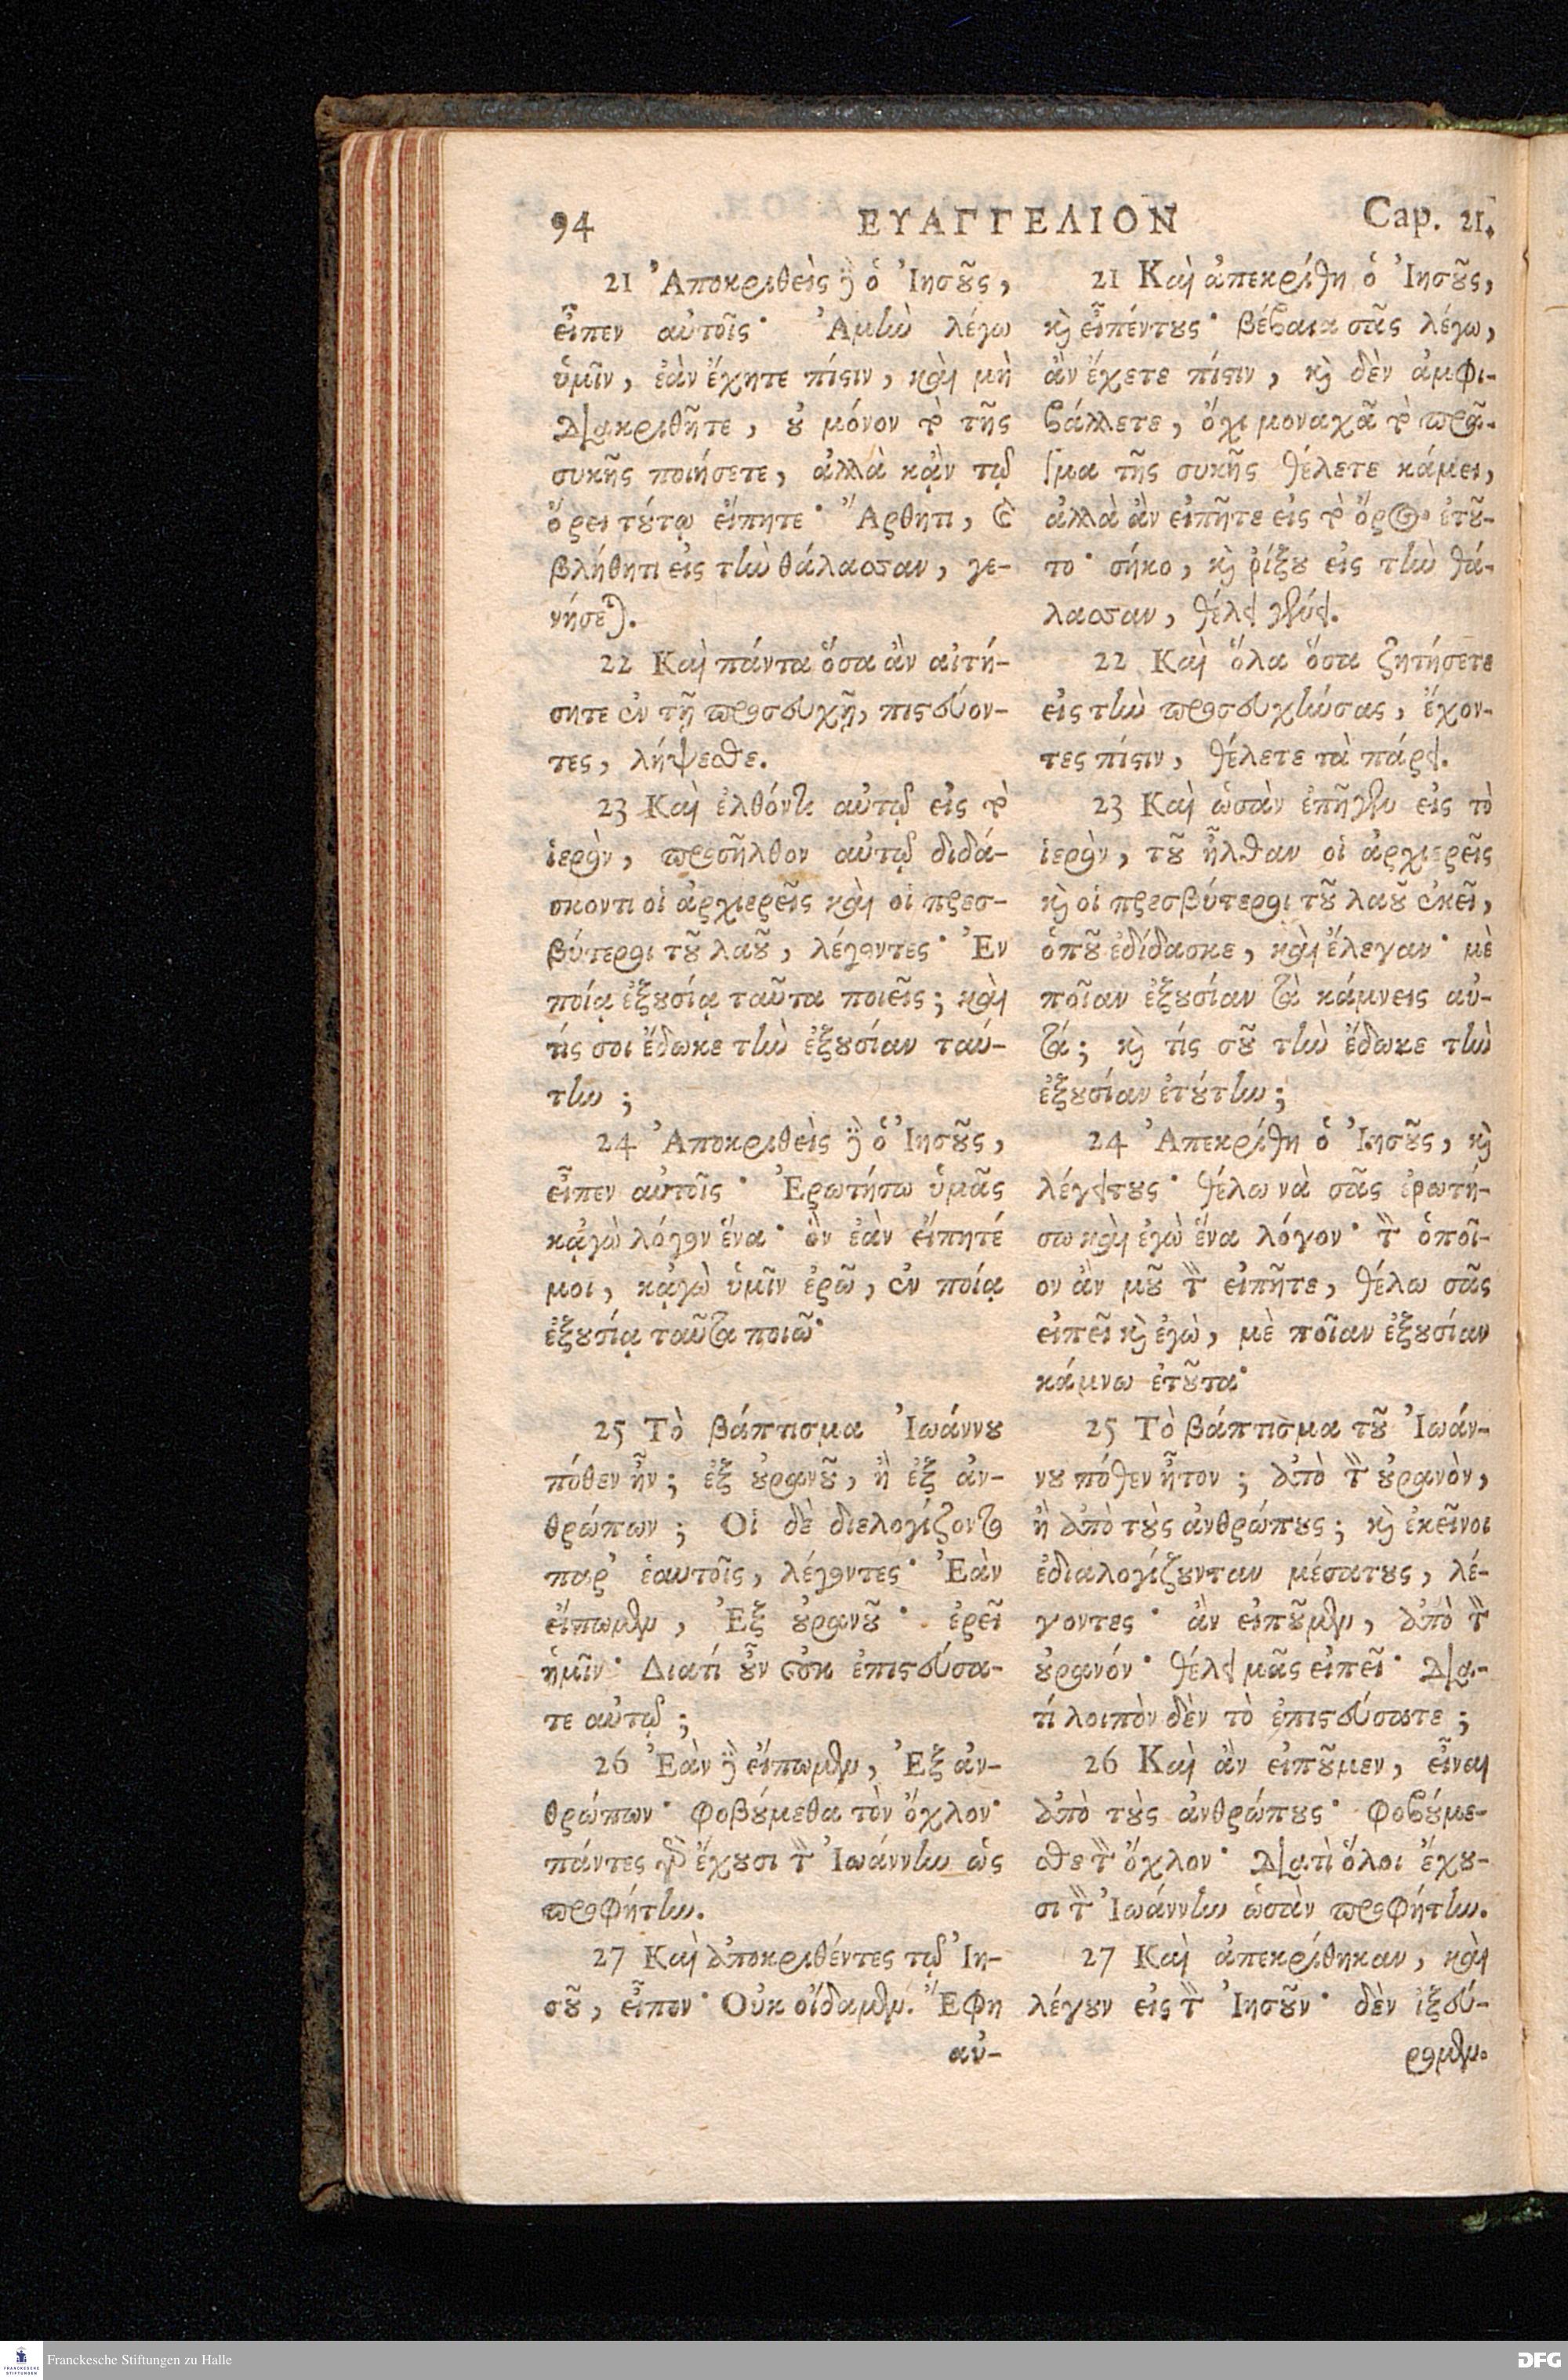 94 ΕΥΑΓΓΕΛΙΟΝ Cap. 21.
21 Ἀποκριθεὶς δὲ ὁ Ἰησοῦς,
εἶπεν αὐτοῖς· Ἀμὴν λέγω
ὑμῖν, ἐὰν ἔχητε πίστιν, καὶ μὴ
διακριθῆτε, οὐ μόνον τὸ τῆς
συκῆς ποιήσετε, ἀλλὰ κᾂν τῷ
ὄρει τούτῳ εἴπητε· Ἄρθητι, καὶ
βλήθητι εἰς τὴν θάλασσαν, γε-
νήσεται.
22 Καὶ πάντα ὅσα ἂν αἰτή-
σητε ἐν τῇ προσευχῇ, πιστεύον-
τες, λήψεσθε.
23 Καὶ ἐλθόντι αὐτῷ εἰς τὸ
ἱερὸν, προσῆλθον αὐτῷ διδά-
σκοντι οἱ ἀρχιερεῖς καὶ οἱ πρεσ-
βύτεροι τοῦ λαοῦ, λέγοντες· Ἐν
ποίᾳ ἐξουσίᾳ ταῦτα ποιεῖς; καὶ
τίς σοι ἔδωκε τὴν ἐξουσίαν ταύ-
την;
24 Ἀποκριθεὶς δὲ ὁ Ἰησοῦς,
εἶπεν αὐτοῖς· Ἐρωτήσω ὑμᾶς
κᾀγὼ λόγον ἕνα· ὃν ἐὰν εἴπητέ
μοι, κᾀγὼ ὑμῖν ἐρῶ, ἐν ποίᾳ
ἐξουσίᾳ ταῦτα ποιῶ·
25 Τὸ βάπτισμα Ἰωάννου
πόθεν ἦν; ἐξ οὐρανοῦ, ἢ ἐξ ἀν-
θρώπων; Οἱ δὲ διελογίζοντο
παρ' ἑαυτοῖς, λέγοντες· Ἐὰν
εἴπωμεν, Ἐξ οὐρανοῦ· ἐρεῖ
ἡμῖν· Διατί οὖν οὐκ ἐπιστεύσα-
τε αὐτῷ;
26 Ἐὰν δὲ εἴπωμεν, Ἐξ ἀν-
θρώπων· φοβούμεθα τὸν ὄχλον·
πάντες γὰρ ἔχουσι τὸν Ἰωάννην ὡς
προφήτην.
27 Καὶ ἀποκριθέντες τῷ Ἰη-
σοῦ, εἶπον· Οὐκ οἴδαμεν. Ἔφη
αὐ-
21 Καὶ ἀπεκρίθη ὁ Ἰησοῦς,
καὶ εἶπέντους· βέβαια σᾶς λέγω,
ἂν ἔχετε πίστιν, καὶ δὲν ἀμφι-
βάλλετε, ὄχι μοναχᾶ τὸ πρᾶ-
γμα τῆς συκῆς θέλετε κάμει,
ἀλλὰ ἂν εἰπῆτε εἰς τὸ ὄρος ἐτοῦ-
το· σήκο, καὶ ῥίξου εἰς τὴν θά-
λασσαν, θέλει γενεῖ.
22 Καὶ ὅλα ὅσα ζητήσετε
εἰς τὴν προσευχήνσας, ἔχον-
τες πίστιν, θέλετε τὰ πάρει.
23 Καὶ ὡσὰν ἐπῆγεν εἰς τὸ
ἱερὸν, τοῦ ἦλθαν οἱ ἀρχιερεῖς
καὶ οἱ πρεσβύτεροι τοῦ λαοῦ ἐκεῖ,
ὁποῦ ἐδίδασκε, καὶ ἔλεγαν· μὲ
ποῖαν ἐξουσίαν τὰ κάμνεις αὐ-
τά; καὶ τίς σοῦ τὴν ἔδωκε τὴν
ἐξουσίαν ἐτούτην;
24 Ἀπεκρίθη ὁ Ἰησοῦς, καὶ
λέγειτους· θέλω νὰ σᾶς ἐρωτή-
σω καὶ ἐγὼ ἕνα λόγον· τὸν ὁποῖ-
ον ἂν μοῦ τὸν εἰπῆτε, θέλω σᾶς
εἰπεῖ καὶ ἐγὼ, μὲ ποῖαν ἐξουσίαν
κάμνω ἐτοῦτα·
25 Τὸ βάπτισμα τοῦ Ἰωάν-
νου πόθεν ἦτον; ἀπὸ τὸν οὐρανὸν,
ἢ ἀπὸ τοὺς ἀνθρώπους; καὶ ἐκεῖνοι
ἐδιαλογίζουνταν μέσατους, λέ-
γοντες· ἂν εἰποῦμεν, ἀπὸ τὸν
οὐρανόν· θέλει μᾶς εἰπεῖ· Δια-
τί λοιπὸν δὲν τὸ ἐπιστεύσατε;
26 Καὶ ἂν εἰποῦμεν, εἶναι
ἀπὸ τοὺς ἀνθρώπους· φοβούμε-
σθε τὸν ὄχλον· Διατὶ ὅλοι ἔχου-
σι τὸν Ἰωάννην ὡσὰν προφήτην.
27 Καὶ ἀπεκρίθηκαν, καὶ
λέγουν εἰς τὸν Ἰησοῦν· δὲν ἰξεύ-
ρομεν.
Franckesche Stiftungen zu Halle
DFG